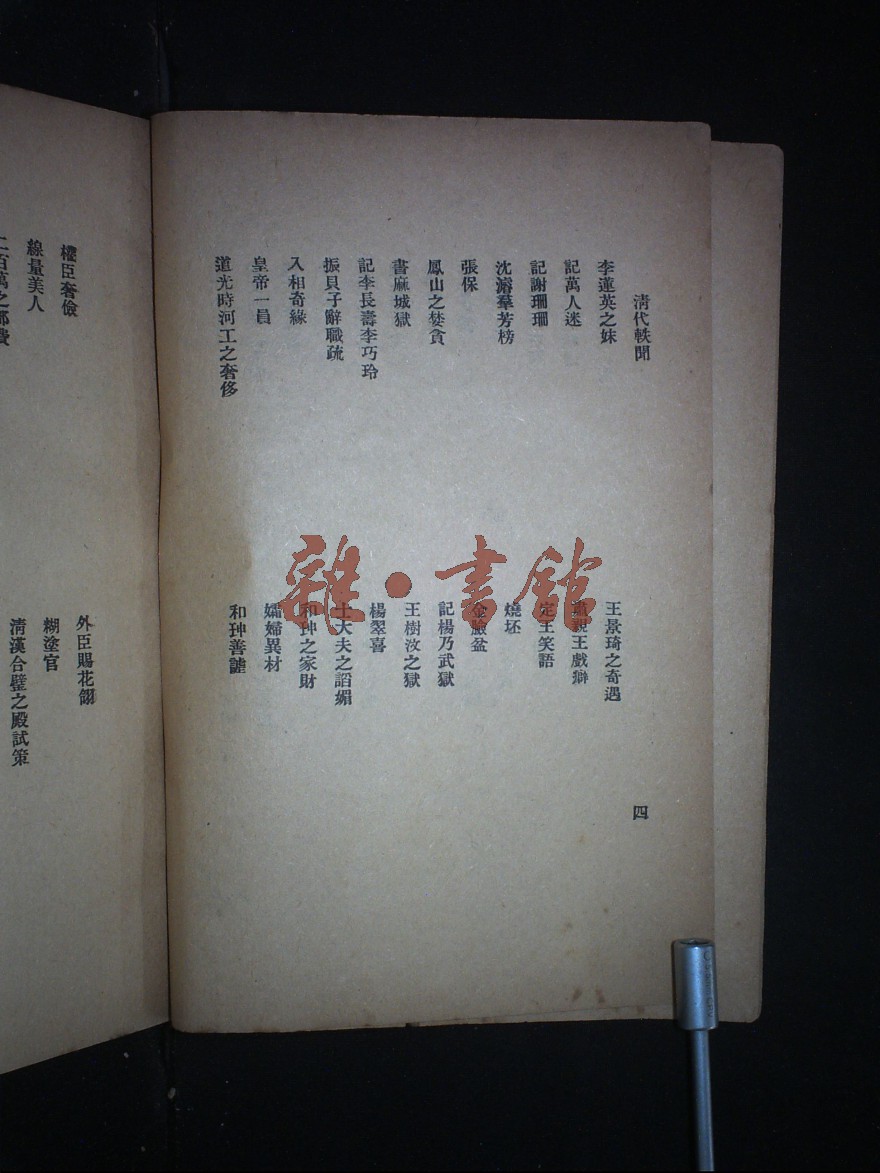 清代軼聞
四
李蓮英之妹
記萬人迷
記謝珊珊
沈濤羣芳榜
張保
鳳山之婪貪
書麻城獄
記李長壽李巧玲
振貝子辭職疏
入相奇緣
皇帝一員
道光時河工之奢侈
王景琦之奇遇
親王戲癖
定王笑語
燒坯
金臉盆
記楊乃武獄
王樹汶之獄
楊翠喜
士大夫之諂媚
和珅之家財
孀婦異材
和珅善謔
權臣奢儉
線量美人
二百萬之部費
外臣賜花翎
糊塗官
清漢合璧之殿試策
雜·書館